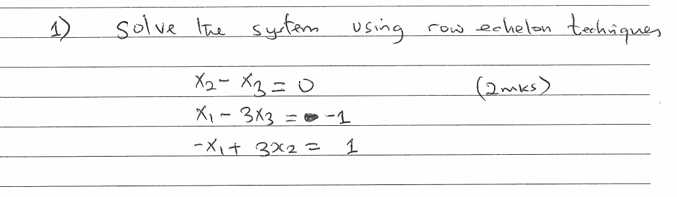 1) Solve the system using row echelon techniques
x₂ - x₃ = 0 (2mks)
x₁ - 3x₃ = -1
-x₁ + 3x₂ = 1